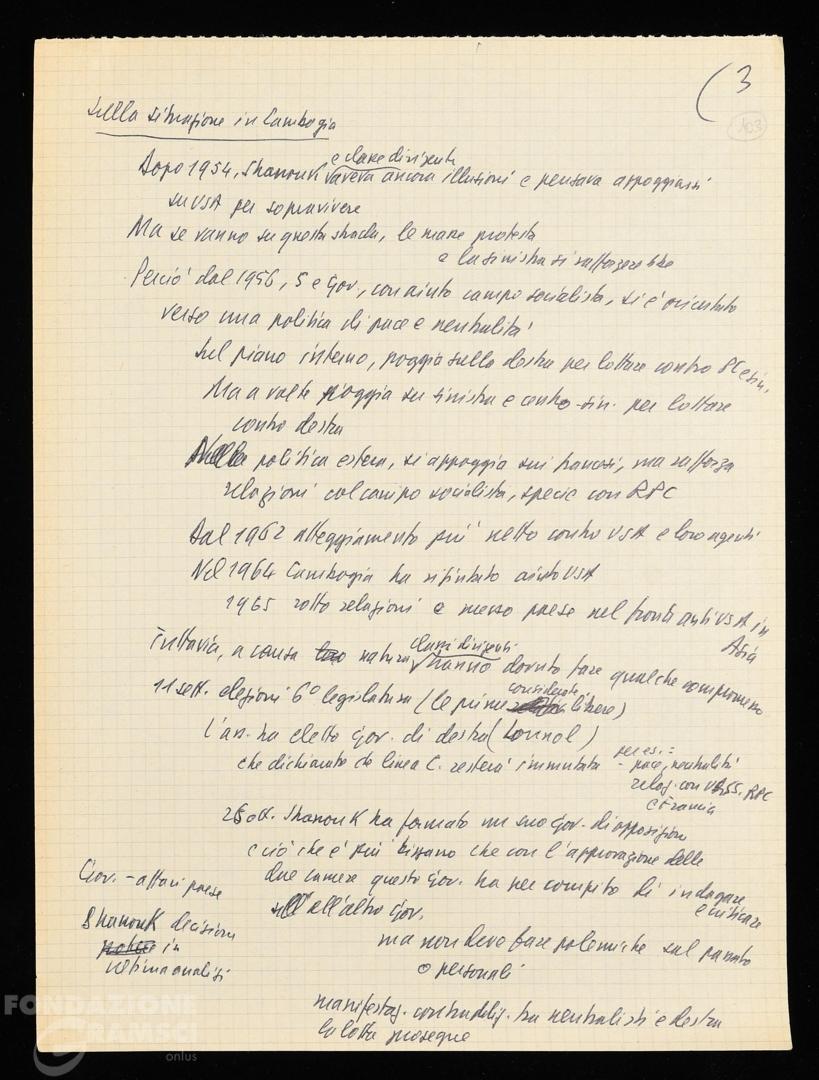 (3
103
sulla situazione in Cambogia
e classe dirigente
Dopo 1954, Shanouk aveva ancora illusioni e pensava appoggiarsi
su USA per sopravivere
Ma se vanno su questa strada, le masse protesta
e la sinistra si rafforzerebbe
Perciò dal 1956, S e Gov, con aiuto campo socialista, si è orientato
verso una politica di pace e neutralità
Sul piano interno, poggia sulla destra per lottare contro PC e sin.
Ma a volte poggia su sinistra e centro-sin. per lottare
contro destra
Nella politica estera, si appoggia sui francesi, ma rafforza
relazioni col campo socialista, specie con RPC
Dal 1962 atteggiamento più netto contro USA e loro agenti
Nel 1964 Cambogia ha rifiutato aiuto USA
1965 rotto relazioni e messo paese nel fronte anti USA in
Asia
Tuttavia, a causa loro natura classi dirigenti hanno dovuto fare qualche compromesso
11 sett. elezioni 6° legislatura (le prime considerate libere)
L'ass. ha eletto Gov. di destra (Lonnol)
che dichiarato che linea C. resterà immutata per es. =
- pace, neutralità
relaz. con URSS. RPC
e Francia
26 ott. Shanouk ha formato un suo Gov. di opposizione
e ciò che è più bizzarro che con l'approvazione delle
due camere questo Gov. ha per compito di indagare
e criticare
all'altro Gov.
ma non deve fare polemiche sul passato
o personali
Gov. - affari paese
Shanouk decisioni
in
ultima analisi
manifestaz. contraddiz. tra neutralisti e destra
la lotta prosegue
FONDAZIONE
GRAMSCI
onlus